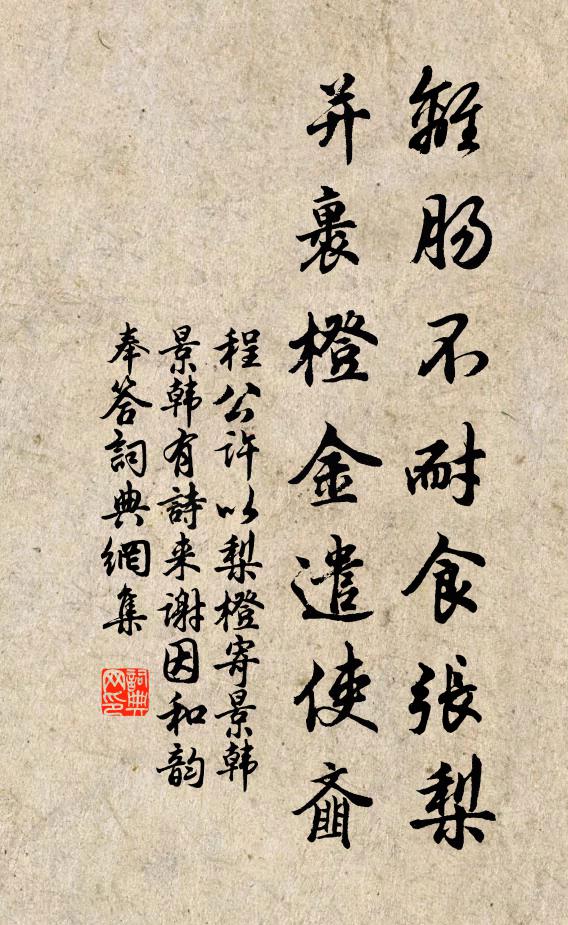 離腸不耐食張梨
并裹橙金遣使齏
程公許以梨橙寄景韩
景韩有詩来謝因和韵
奉答詞典網集
詞典网印